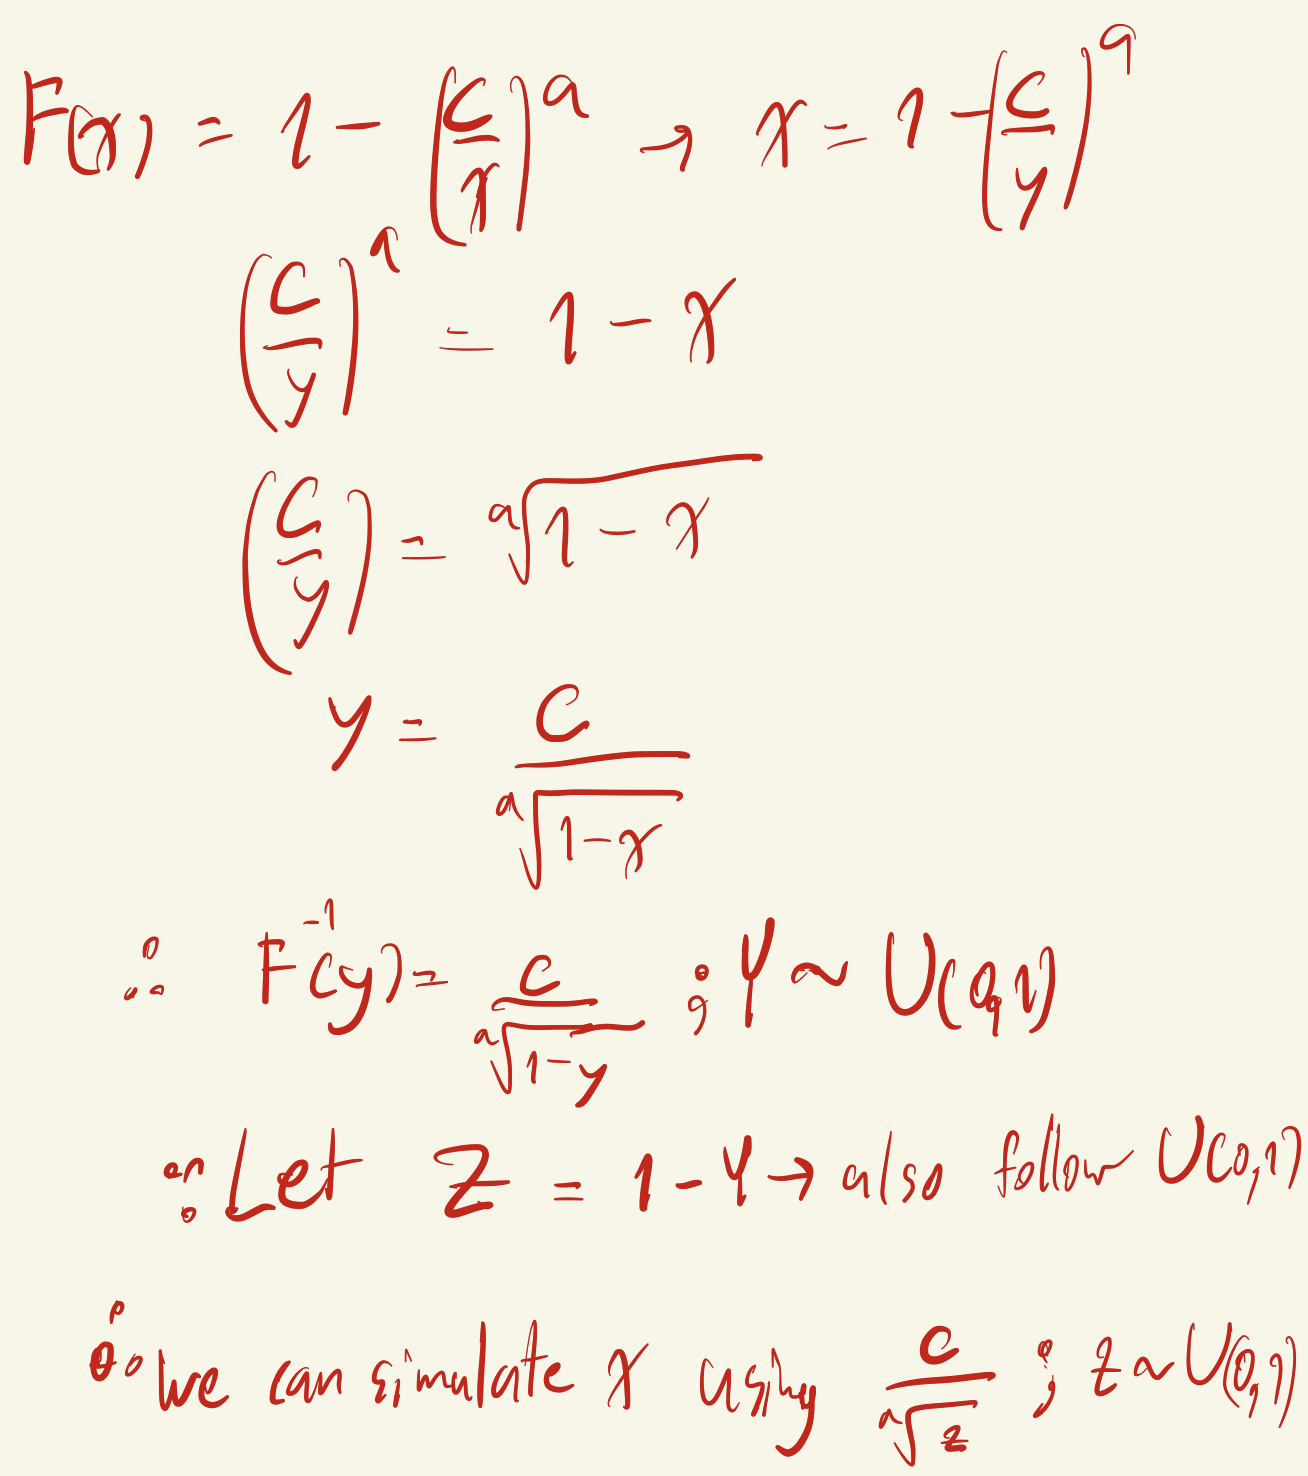 F(x) = 1 - (c/x)^a → x = 1 - (c/y)^a
(c/y)^a = 1 - x
(c/y) = ᵃ√(1 - x)
y = c / ᵃ√(1-x)
∴ F⁻¹(y) = c / ᵃ√(1-y) ; Y ~ U(0,1)
∵ Let Z = 1 - Y → also follow U(0,1)
∴ we can simulate x using c / ᵃ√z ; z ~ U(0,1)